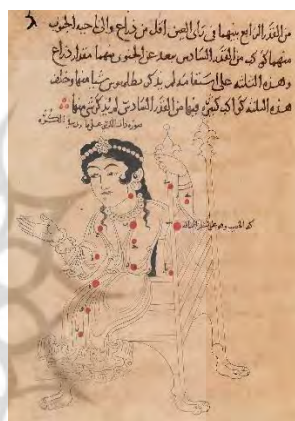 من القدر الرابع بينهما في رأي العين اقل من ذراع والى ناحية الجنوب
منهما كوكب من القدر السادس بعده عن الجنوبي منهما مقدار ذراع
وهذه الثلثة على استقامة لم يذكر بطلميوس شيا منها وخلف
هذه الثلثة كواكب كثيرة فيها من القدر السادس لم يذكر شي منها
صورة ذات الكرسي على ما ترى في الكرة